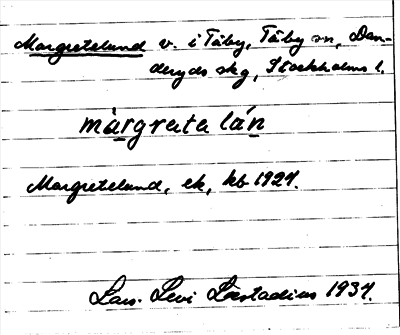 Margretelund v. i Täby, Täby sn, Dan-
deryds skg, Stockholms l.
màrgrata lán
Margretelund, ek, kb 1927.
Lars Levi Læstadius 1937.